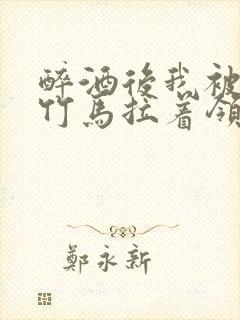 醉酒後我被
竹馬拉着領
鄭永新